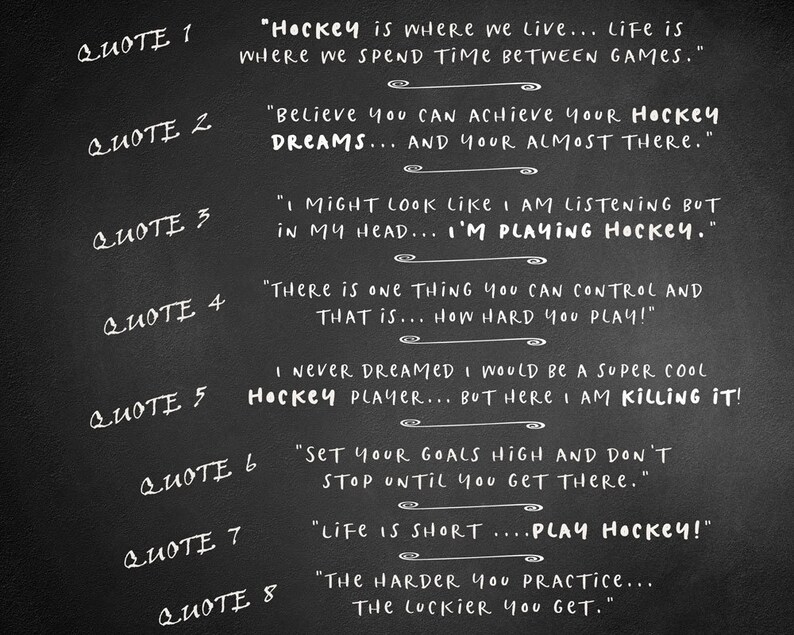 QUOTE 1
"HOCKEY IS WHERE WE LIVE... LIFE IS
WHERE WE SPEND TIME BETWEEN GAMES."
QUOTE 2
"BELIEVE YOU CAN ACHIEVE YOUR HOCKEY
DREAMS... AND YOUR ALMOST THERE."
QUOTE 3
"I MIGHT LOOK LIKE I AM LISTENING BUT
IN MY HEAD... I'M PLAYING HOCKEY."
QUOTE 4
"THERE IS ONE THING YOU CAN CONTROL AND
THAT IS... HOW HARD YOU PLAY!"
QUOTE 5
I NEVER DREAMED I WOULD BE A SUPER COOL
HOCKEY PLAYER... BUT HERE I AM KILLING IT!
QUOTE 6
"SET YOUR GOALS HIGH AND DON'T
STOP UNTIL YOU GET THERE."
QUOTE 7
"LIFE IS SHORT ....PLAY HOCKEY!"
QUOTE 8
"THE HARDER YOU PRACTICE...
THE LUCKIER YOU GET."